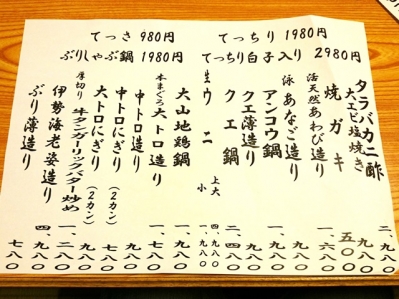 てっさ 980円
てっちり 1980円
ぶりしゃぶ鍋 1980円
てっちり白子入り 2980円
タラバカニ酢 二、九八〇
大エビ塩焼き 九八〇
焼ガキ 五〇〇
活天然あわび造り 一、六八〇
泳あなご造り 九八〇
アンコウ鍋 一、九八〇
クエ薄造り 九八〇
クエ鍋 二、四八〇
生ウニ 上大 一、九八〇
小 九八〇
大山地鶏鍋 一、九八〇
本まぐろ大トロ造り 一、九八〇
中トロ造り 九八〇
中トロにぎり(2カン) 七八〇
大トロにぎり(2カン) 九八〇
厚切り牛タンガーリックバター炒め 一、二八〇
伊勢海老姿造り 四、九八〇
ぶり薄造り 七八〇